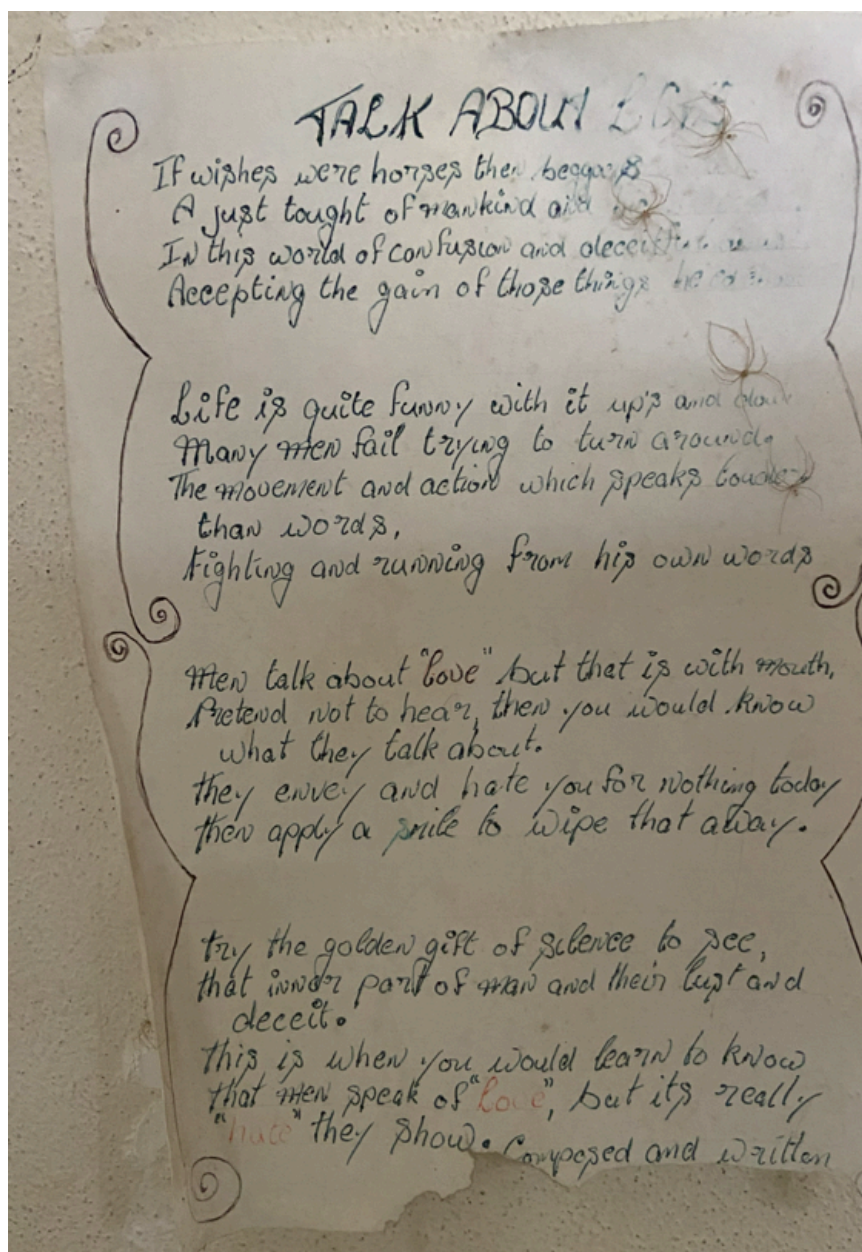 TALK ABOUT
If wishes were horses then beggars
A just tought of mankind and
In this world of confusion and
Accepting the gain of those things he
Life is quite funny with it up's and
Many men fail trying to turn around.
The movement and action which speaks louder
than words,
Fighting and running from his own words
Men talk about "Love" but that is with mouth,
Pretend not to hear, then you would know
what they talk about.
they envey and hate you for nothing today
then apply a smile to wipe that away.
try the golden gift of silence to see,
that inner part of man and their lust and
deceit.
this is when you would learn to know
that men speak of "Love", but its really
"hate" they show. Composed and written